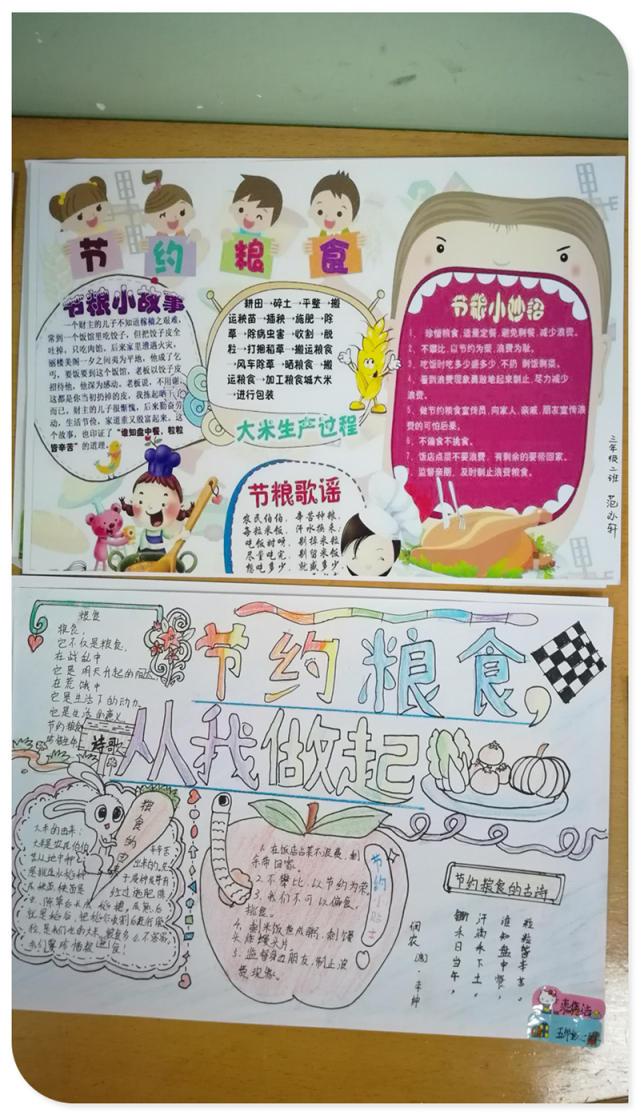 节约粮食
节粮小故事
一个财主的儿子不知道稼穑之艰难，
常到一个饭馆里吃饺子，但把饺子皮全
吐掉，只吃肉馅。后来家里遭遇火灾，
丽楼美阁一夕之间夷为平地，他成了乞
丐，要饭要到这个饭馆，老板以饺子皮
招待他，他深为感动。老板说，不用谢，
这都是你当初扔掉的皮，我拣起晒干了
而已。财主的儿子很惭愧，后来勤奋劳
动，生活节俭，家道重又殷富起来。这
个故事，也印证了“谁知盘中餐，粒粒
皆辛苦”的道理。
耕田→碎土→平整→搬
运秧苗→插秧→施肥→除
草→除病虫害→收割→脱
粒→打捆稻草→搬运粮食
→风车除草→晒粮食→搬
运粮食→加工粮食城大米
→进行包装
大米生产过程
节粮小妙招
1、珍惜粮食,适量定餐,避免剩餐,减少浪费。
2、不攀比,以节约为荣,浪费为耻。
3、吃饭时吃多少盛多少 不扔 剩饭剩菜。
4、看到浪费现象勇敢地起来制止,尽力减少
浪费。
5、做节约粮食宣传员,向家人,亲戚,朋友宣传浪
费的可怕后果。
6、不偏食不挑食。
7、饭店点菜不要浪费，有剩余的要带回家。
8、监督亲朋，及时制止浪费粮食。
节粮歌谣
农民伯伯，辛苦种粮，
每粒米饭，汗水换来；
吃饭时呀，别掉米粒
尽量吃完，别留米饭
想吃多少，就盛多少
三年级二班
粮食
粮食，
它不仅是粮食，
在战乱中
在荒饿中
它是生活下的动力
诗歌
节约粮食，
从我做起
粮食的由来
大米的由来：
节约小贴士
1.在饭店点菜不浪费，剩
余带回家。
2.不攀比，以节约为荣。
3.我们不可以偏食，
挑食。
5.监督身边朋友，制止浪
费现象。
节约粮食的古诗
悯农
锄禾日当午，
汗滴禾下土。
谁知盘中餐，
粒粒皆辛苦。